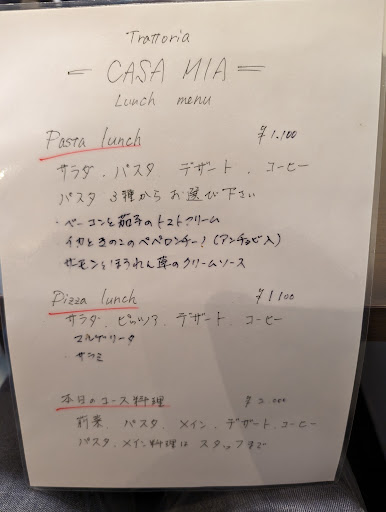 Trattoria
= CASA MIA =
Lunch menu
Pasta lunch ¥1.100
サラダ、パスタ デザート、コーヒー
パスタ 3種からお選び下さい
・ベーコンと茄子のトマトクリーム
・イカときのこのペペロンチーノ(アンチョビ入)
・サーモンとほうれん草のクリームソース
Pizza lunch ¥1100
サラダ、ピッツァ、デザート、コーヒー
・マルゲリータ
・サラミ
本日のコース料理 ¥2.000
前菜、パスタ、メイン、デザート、コーヒー
パスタ、メイン料理は スタッフまで